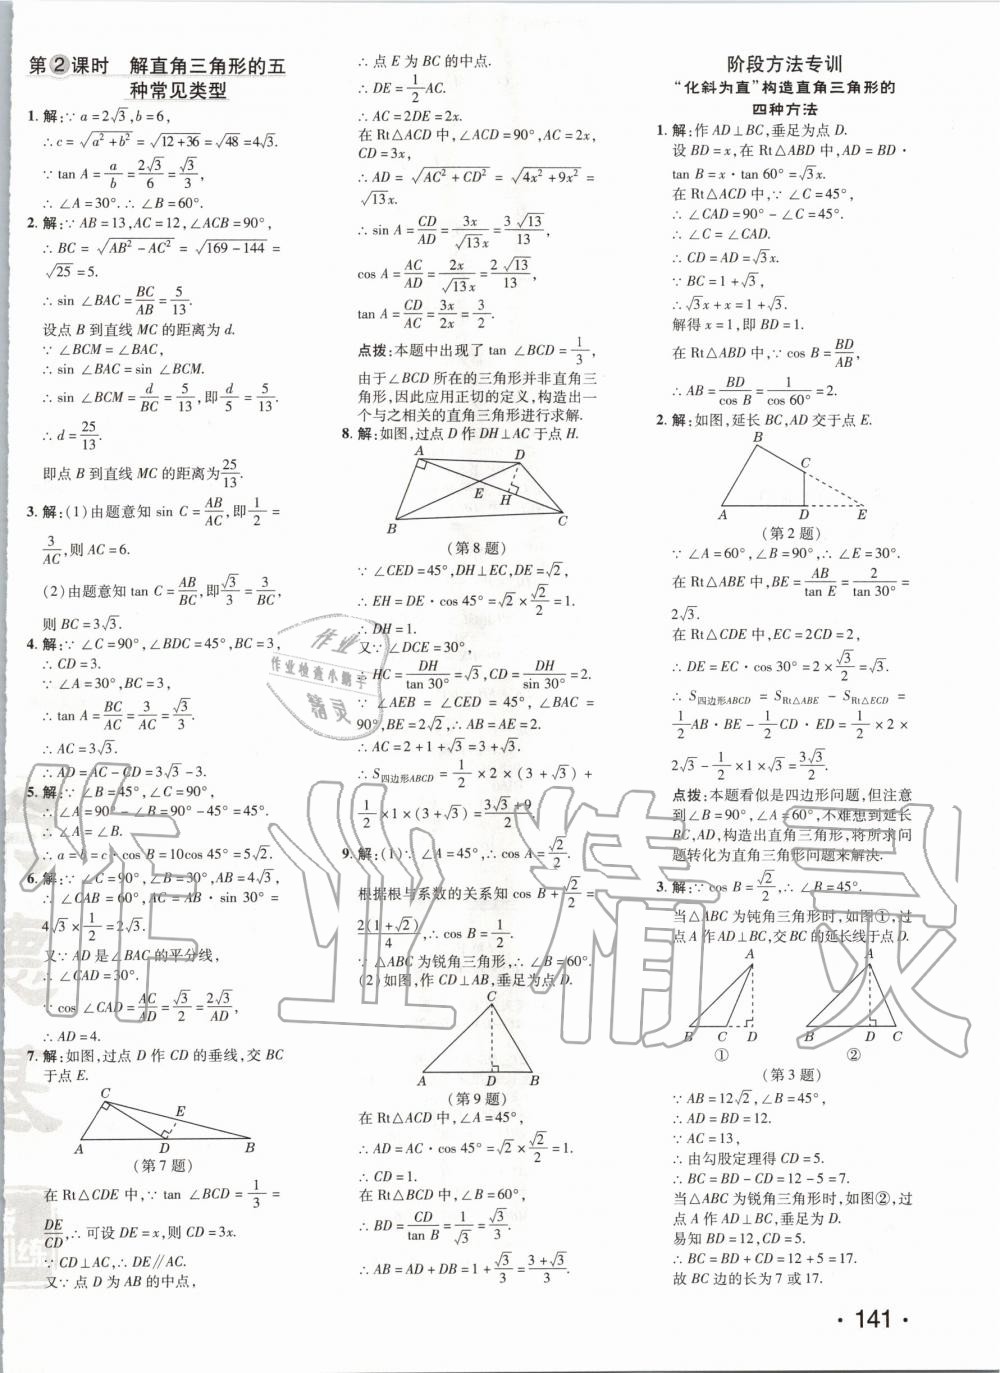 第②课时 解直角三角形的五
种常见类型
1. 解:∵a=2√3,b=6,
∴c=√(a²+b²)=√(12+36)=√48=4√3.
∵tan A=a/b=2√3/6=√3/3,
∴∠A=30°.∴∠B=60°.
2. 解:∵AB=13,AC=12,∠ACB=90°,
∴BC=√(AB²-AC²)=√(169-144)=
√25=5.
∴sin ∠BAC=BC/AB=5/13.
设点 B 到直线 MC 的距离为 d.
∵∠BCM=∠BAC,
∴sin ∠BAC=sin ∠BCM.
∴sin ∠BCM=d/BC=5/13,即d/5=5/13.
∴d=25/13.
即点 B 到直线 MC 的距离为25/13.
3. 解:(1)由题意知 sin C=AB/AC,即1/2=
3/AC,则 AC=6.
(2)由题意知 tan C=AB/BC,即√3/3=3/BC,
则 BC=3√3.
4. 解:∵∠C=90°,∠BDC=45°,BC=3,
∴CD=3.
∵∠A=30°,
∴tan A=BC/AC=3/AC=√3/3.
∴AC=3√3.
∴AD=AC-CD=3√3-3.
5. 解:∵∠B=45°,∠C=90°,
∴∠A=90°-∠B=90°-45°=45°.
∴∠A=∠B.
∴a=b=c·cos B=10cos 45°=5√2.
6. 解:∵∠C=90°,∠B=30°,AB=4√3,
∴∠CAB=60°,AC=AB·sin 30°=
4√3×1/2=2√3.
又∵AD 是∠BAC 的平分线,
∴∠CAD=30°.
∵cos ∠CAD=AC/AD=√3/2=2√3/AD,
∴AD=4.
7. 解:如图,过点 D 作 CD 的垂线,交 BC
于点 E.
C E A D B
(第 7 题)
在 Rt△CDE 中,∵tan ∠BCD=1/3=
DE/CD,∴可设 DE=x,则 CD=3x.
∵CD⊥AC,∴DE∥AC.
又∵点 D 为 AB 的中点,
∴点 E 为 BC 的中点.
∴DE=1/2 AC.
∴AC=2DE=2x.
在 Rt△ACD 中,∠ACD=90°,AC=2x,
CD=3x,
∴AD=√(AC²+CD²)=√(4x²+9x²)=
√13x.
∴sin A=CD/AD=3x/√13x=3√13/13,
cos A=AC/AD=2x/√13x=2√13/13,
tan A=CD/AC=3x/2x=3/2.
点拨:本题中出现了 tan ∠BCD=1/3,
由于∠BCD 所在的三角形并非直角三
角形,因此应用正切的定义,构造出一
个与之相关的直角三角形进行求解.
8. 解:如图,过点 D 作 DH⊥AC 于点 H.
A D E H B C
(第 8 题)
∵∠CED=45°,DH⊥EC,DE=√2,
∴EH=DE·cos 45°=√2×√2/2=1.
∴DH=1.
又∵∠DCE=30°,
∴HC=DH/tan 30°=√3,CD=DH/sin 30°=2.
∵∠AEB=∠CED=45°,∠BAC=
90°,BE=2√2,∴AB=AE=2.
∴AC=2+1+√3=3+√3.
∴S四边形ABCD=1/2×2×(3+√3)+
1/2×1×(3+√3)=(3√3+9)/2.
9. 解:(1)∵∠A=45°,∴cos A=√2/2.
根据根与系数的关系知 cos B+√2/2=
2(1+√2)/4,∴cos B=1/2.
∵△ABC 为锐角三角形,∴∠B=60°.
(2)如图,作 CD⊥AB,垂足为点 D.
C A D B
(第 9 题)
在 Rt△ACD 中,∠A=45°,
∴AD=AC·cos 45°=√2×√2/2=1.
∴CD=1.
在 Rt△BCD 中,∵∠B=60°,
∴BD=CD/tan B=1/√3=√3/3.
∴AB=AD+DB=1+√3/3=(3+√3)/3.
阶段方法专训
“化斜为直”构造直角三角形的
四种方法
1. 解:作 AD⊥BC,垂足为点 D.
设 BD=x,在 Rt△ABD 中,AD=BD·
tan B=x·tan 60°=√3x.
在 Rt△ACD 中,∵∠C=45°,
∴∠CAD=90°-∠C=45°.
∴∠C=∠CAD.
∴CD=AD=√3x.
∵BC=1+√3,
∴√3x+x=1+√3.
解得 x=1,即 BD=1.
在 Rt△ABD 中,∵cos B=BD/AB,
∴AB=BD/cos B=1/cos 60°=2.
2. 解:如图,延长 BC,AD 交于点 E.
B C A D E
(第 2 题)
∵∠A=60°,∠B=90°,∴∠E=30°.
在 Rt△ABE 中,BE=AB/tan E=2/tan 30°=
2√3.
在 Rt△CDE 中,EC=2CD=2,
∴DE=EC·cos 30°=2×√3/2=√3.
∴S四边形ABCD=SRt△ABE-SRt△ECD=
1/2 AB·BE-1/2 CD·ED=1/2×2×
2√3-1/2×1×√3=3√3/2.
点拨:本题看似是四边形问题,但注意
到∠B=90°,∠A=60°,不难想到延长
BC,AD,构造出直角三角形,将所求问
题转化为直角三角形问题来解决.
3. 解:∵cos B=√2/2,∴∠B=45°.
当△ABC 为钝角三角形时,如图①,过
点 A 作 AD⊥BC,交 BC 的延长线于点 D.
A A
B C D B D C
① ②
(第 3 题)
∵AB=12√2,∠B=45°,
∴AD=BD=12.
∵AC=13,
∴由勾股定理得 CD=5.
∴BC=BD-CD=12-5=7.
当△ABC 为锐角三角形时,如图②,过
点 A 作 AD⊥BC 于点 D.
易知 BD=12,CD=5,
∴BC=BD+CD=12+5=17.
故 BC 边的长为 7 或 17.
·141·
作业
作业检查小助手
精灵
作业精灵